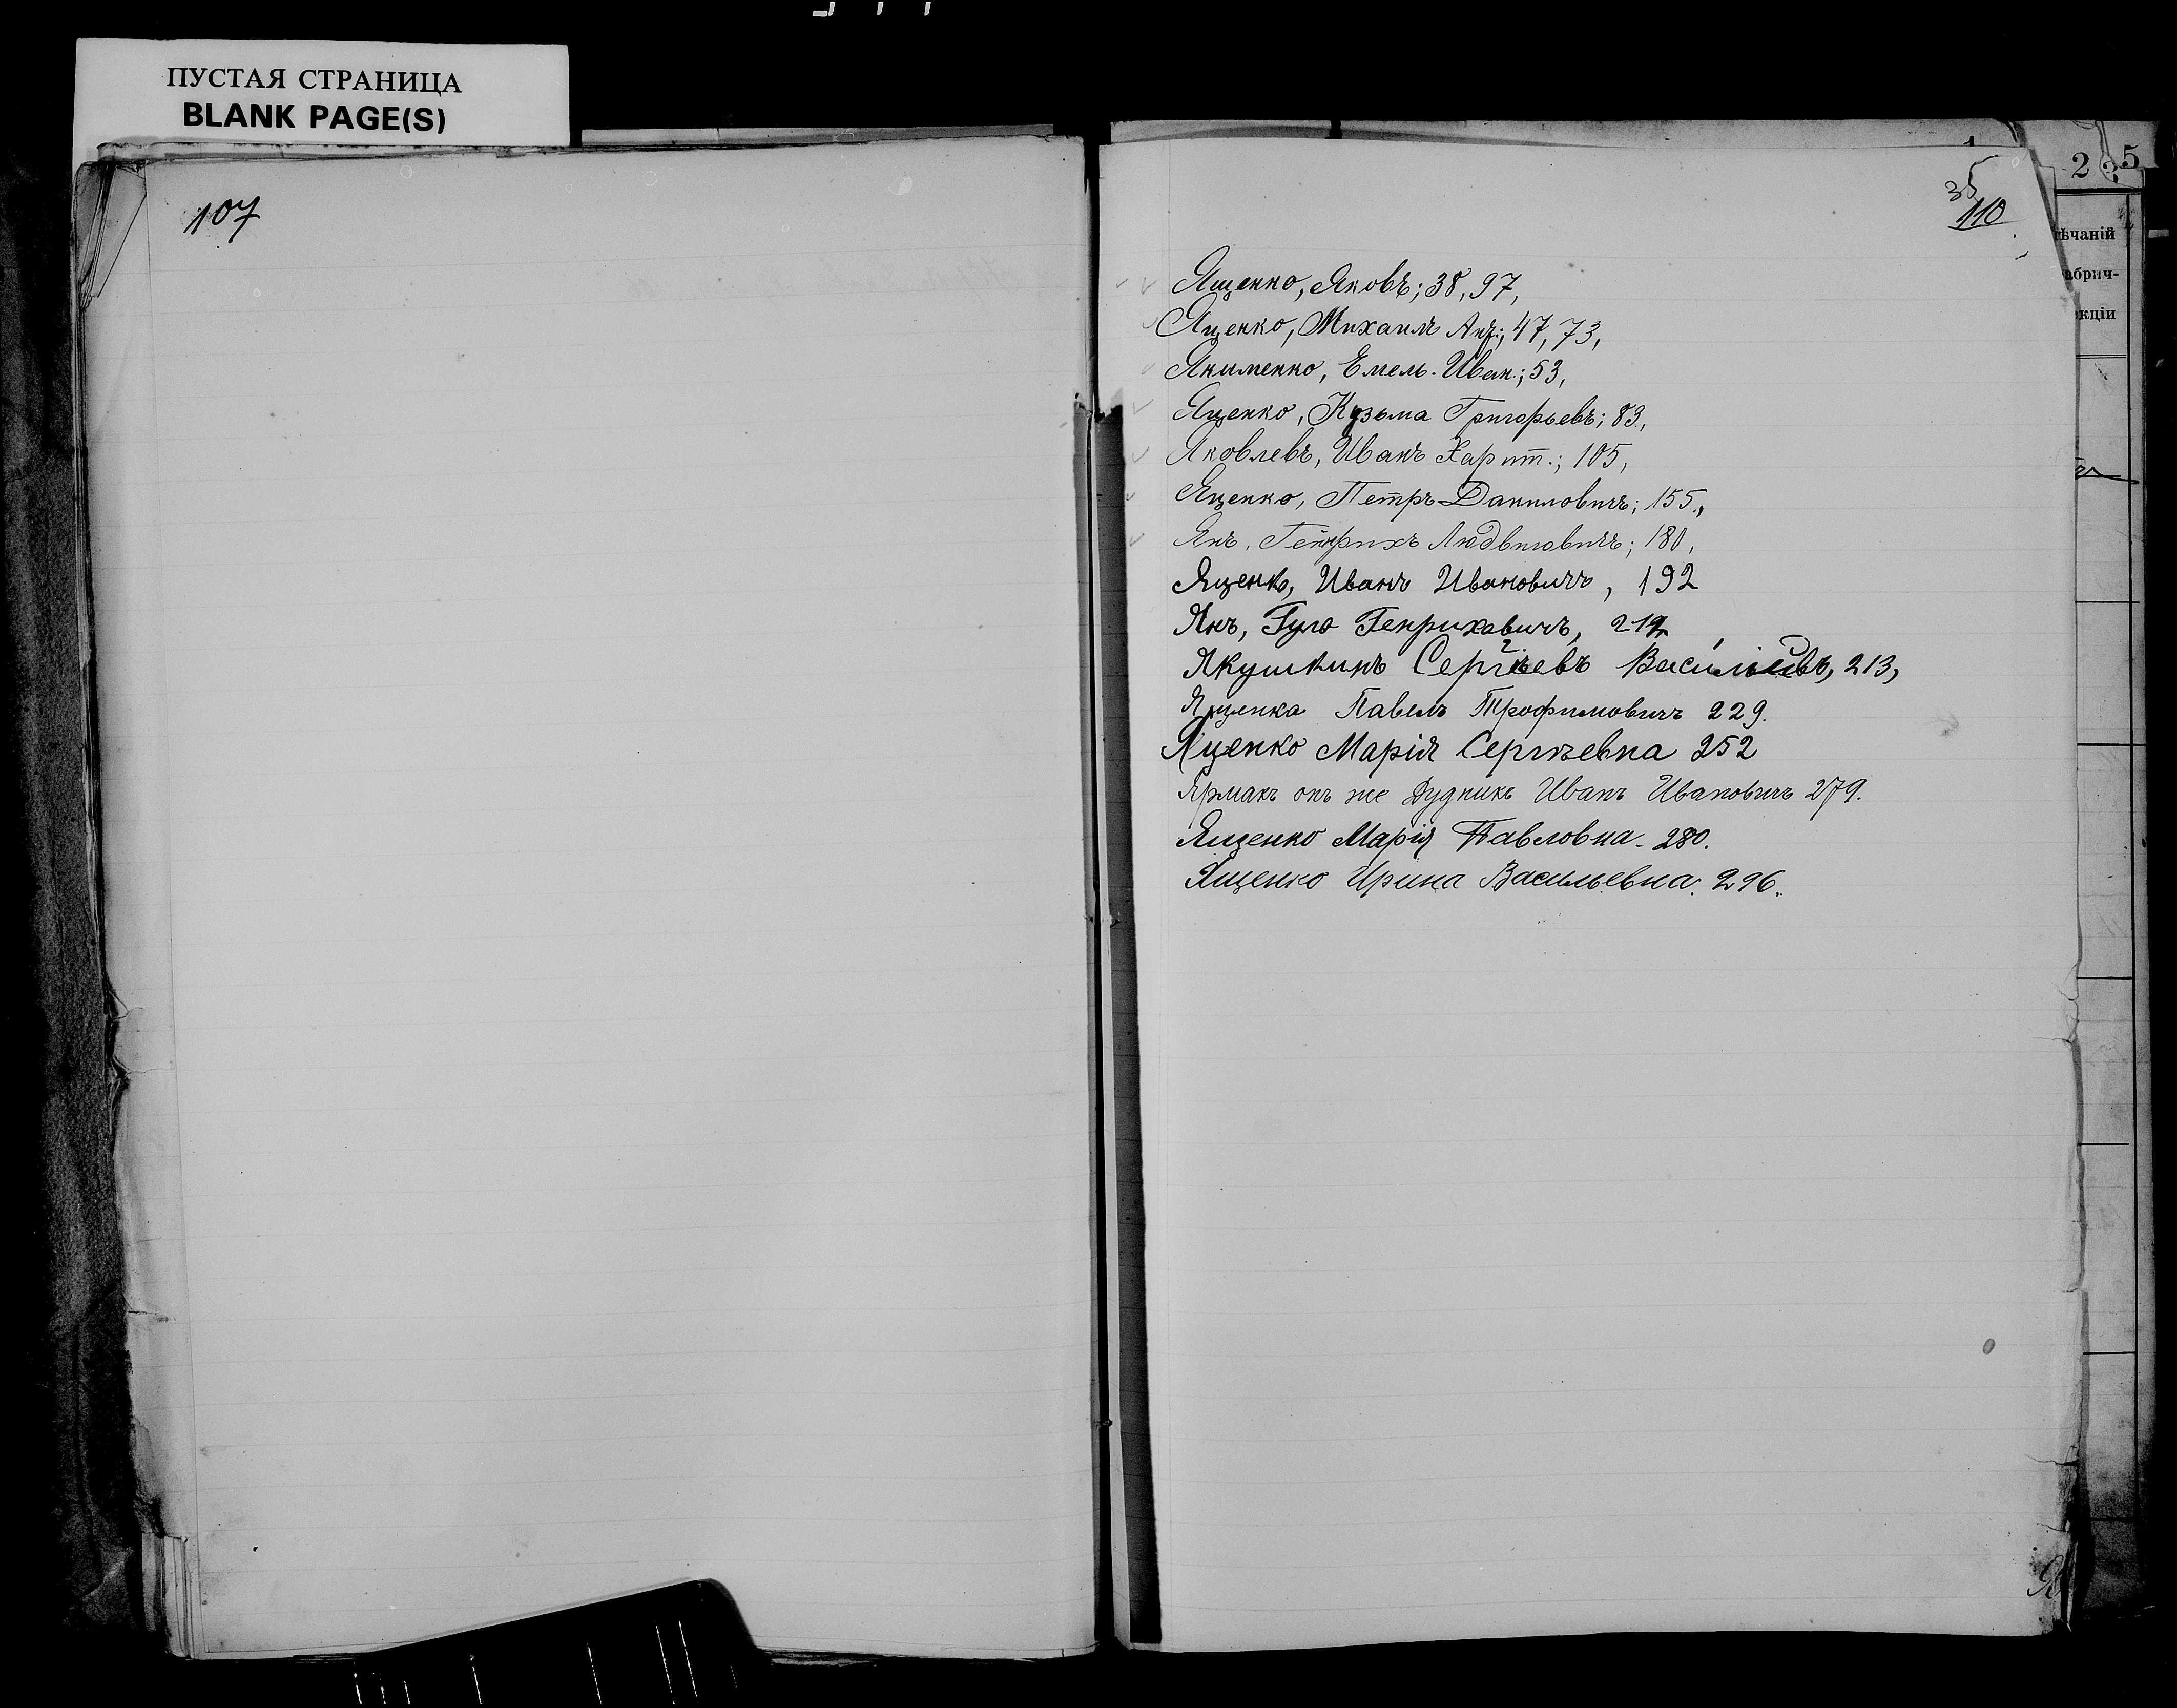 ПУСТАЯ СТРАНИЦА
BLANK PAGE(S)
107
35
110
Ященко, Яковъ; 38, 97,
Яценко, Михаилъ Ант.; 47, 73,
Якименко, Емель. Иван.; 53,
Яценко, Кузьма Григорьевъ; 83,
Яковлевъ, Иванъ Харит.; 105,
Яценко, Петръ Даниловичъ; 155,
Янъ, Генрихъ Людвиговичъ; 180,
Яценко, Иванъ Ивановичъ, 192
Янъ, Гуго Генриховичъ, 212
Якушкинъ Сергѣевъ Васильевъ, 213,
Ященка Павелъ Трофимовичъ 229.
Яценко Марія Сергѣевна 252
Ярмакъ онъ же Дудникъ Иванъ Ивановичъ 279.
Ященко Марія Павловна. 280.
Ященко Ирина Васильевна. 296.
2
5
ѣчаній
абрич-
екціи
Я